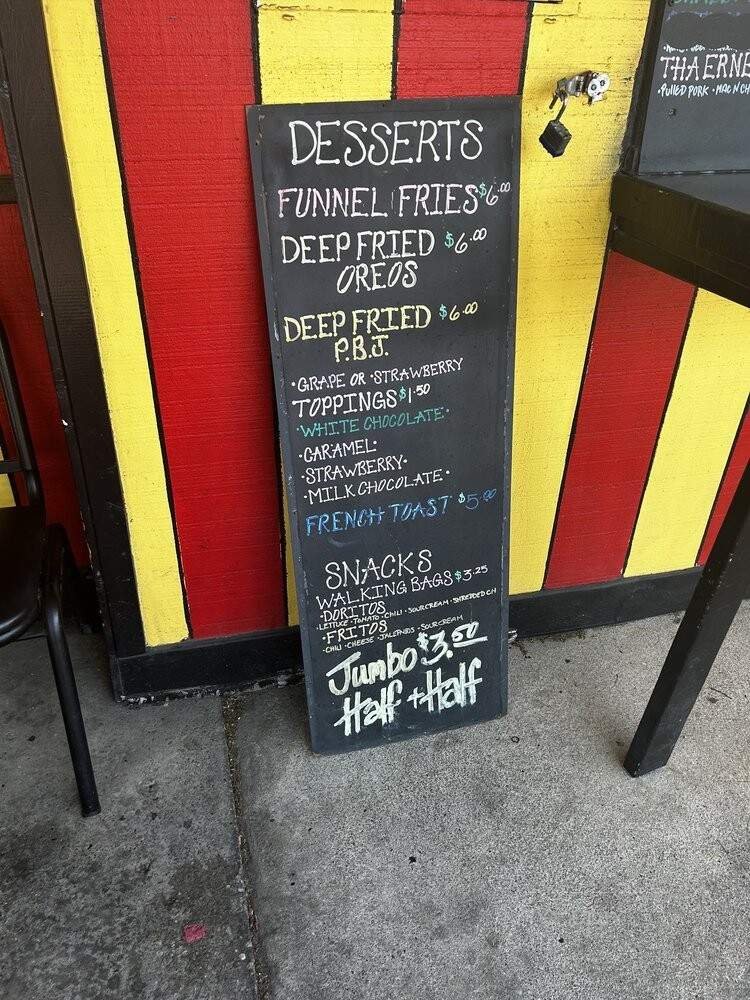 DESSERTS
FUNNEL FRIES $6.00
DEEP FRIED $6.00
OREOS
DEEP FRIED $6.00
P.B.J.
•GRAPE OR •STRAWBERRY
TOPPINGS $1.50
•WHITE CHOCOLATE•
•CARAMEL•
•STRAWBERRY•
•MILK CHOCOLATE•
FRENCH TOAST $5.00
SNACKS
WALKING BAGS $3.25
•DORITOS
•LETTUCE •TOMATO •CHILI •SOUR CREAM •SHREDDED CH
•FRITOS
•CHILI •CHEESE •JALEPNOS •SOUR CREAM
Jumbo $3.50
Half + Half
THA ERNE
•PULLED PORK •MAC N CH